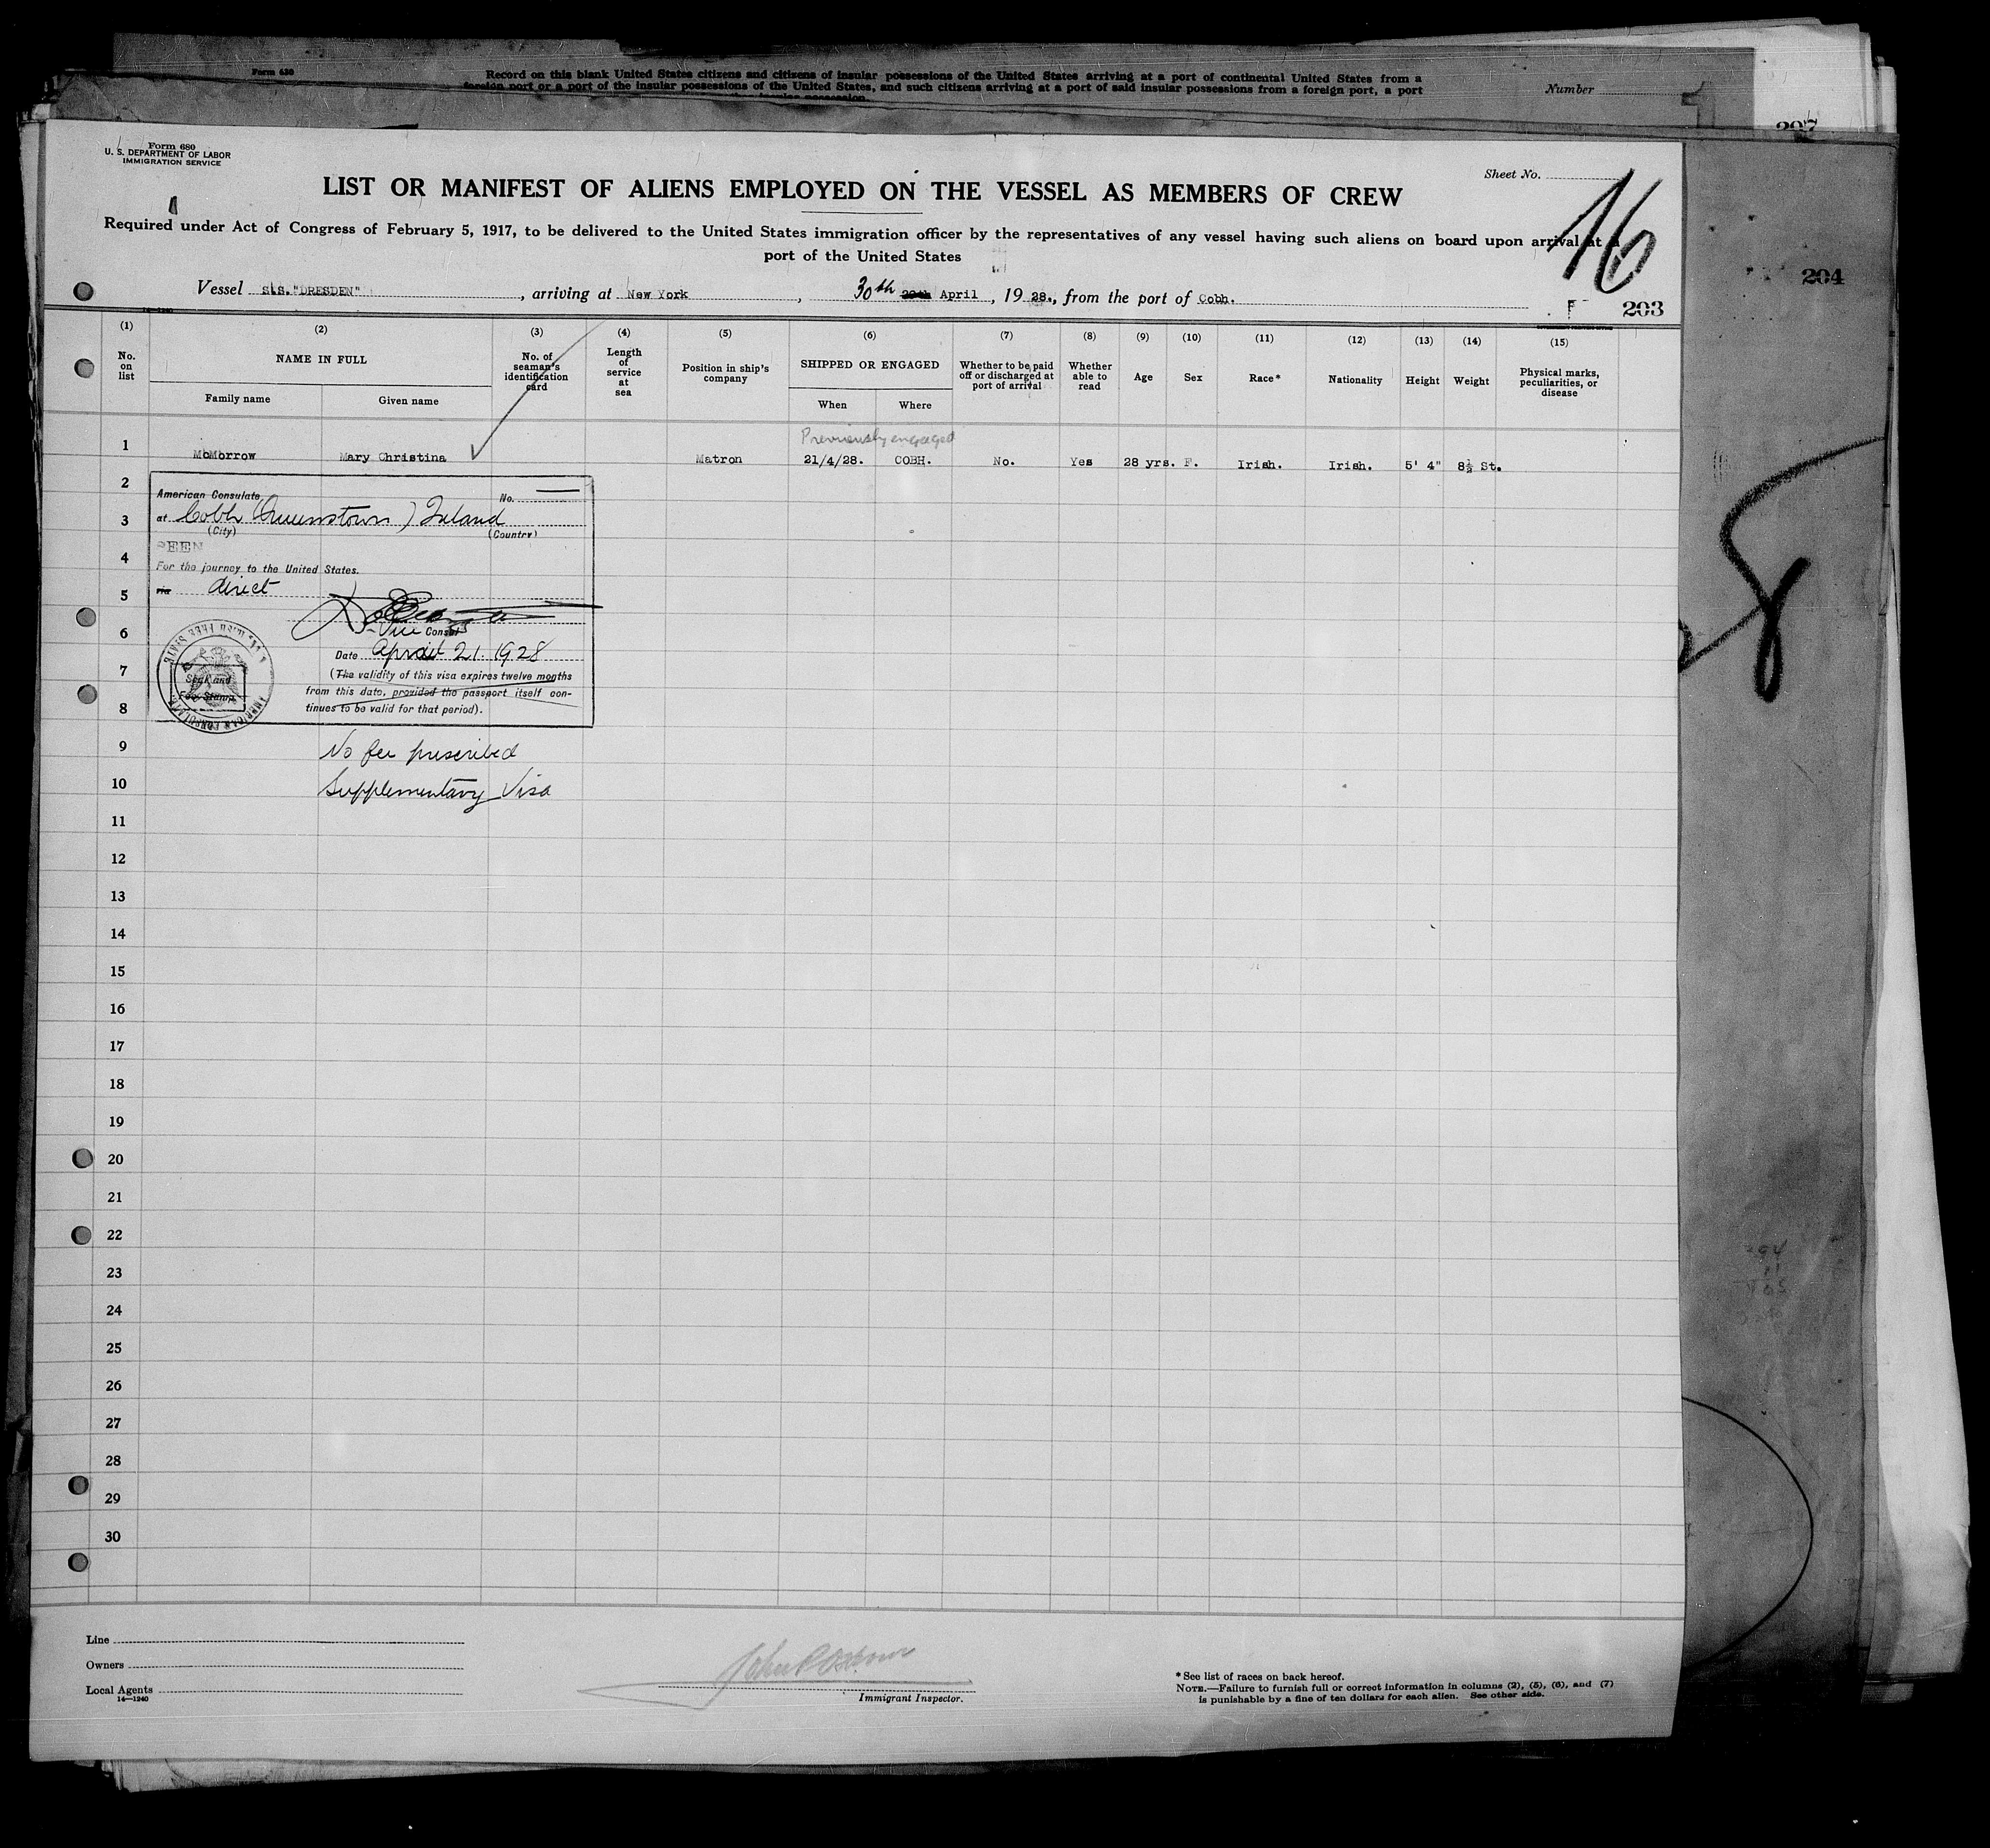 Form 630
Record on this blank United States citizens and citizens of insular possessions of the United States arriving at a port of continental United States from a
foreign port or a port of the insular possessions of the United States, and such citizens arriving at a port of said insular possessions from a foreign port, a port
Number
207
204
Form 680
U. S. DEPARTMENT OF LABOR
IMMIGRATION SERVICE
Sheet No.
16
LIST OR MANIFEST OF ALIENS EMPLOYED ON THE VESSEL AS MEMBERS OF CREW
Required under Act of Congress of February 5, 1917, to be delivered to the United States immigration officer by the representatives of any vessel having such aliens on board upon arrival at a
port of the United States
Vessel S.S. "DRESDEN", arriving at New York, 30th 29th April, 1928., from the port of Cobh.
F 203
14-1240
(1) (2) (3) (4) (5) (6) (7) (8) (9) (10) (11) (12) (13) (14) (15)
No. on list
NAME IN FULL
Family name
Given name
No. of seaman's identification card
Length of service at sea
Position in ship's company
SHIPPED OR ENGAGED
When
Where
Whether to be paid off or discharged at port of arrival
Whether able to read
Age
Sex
Race*
Nationality
Height
Weight
Physical marks, peculiarities, or disease
Previously engaged
1 McMorrow Mary Christina Matron 21/4/28. COBH. No. Yes 28 yrs. F. Irish. Irish. 5' 4" 8½ St.
2
American Consulate, No.
3
at Cobh (Queenstown) Ireland
(City) (Country)
SEEN
4
For the journey to the United States.
5
via direct
6
Vice Consul
Date April 21. 1928
7
(The validity of this visa expires twelve months
from this date, provided the passport itself con-
8
tinues to be valid for that period).
Seal and
Fee Stamp
AMERICAN CONSULATE
IRISH FREE STATE
9
No fee prescribed
10
Supplementary Visa
11
12
13
14
15
16
17
18
19
20
21
22
23
24
25
26
27
28
29
30
Line
Owners
Local Agents
14—1240
Immigrant Inspector.
* See list of races on back hereof.
NOTE.—Failure to furnish full or correct information in columns (2), (5), (6), and (7)
is punishable by a fine of ten dollars for each alien. See other side.